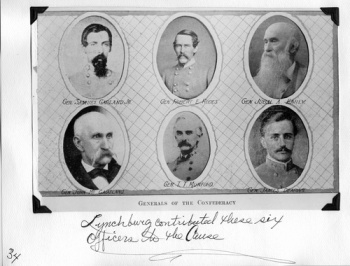 Gen. Samuel Garland Jr.
Gen. Robert E. Rodes
Gen. Jubal A. Early
Gen. T. T. Munford
Gen. James Dearing
Generals of the Confederacy
Lynchburg contributed these six
officers to the Cause
34